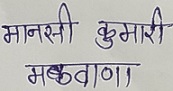 मानसी कुमारी
मकवाणा